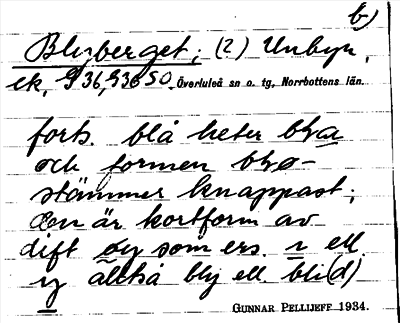 b)
Blyberget; (2) Unbyn,
ek, G36, G36 SO. Överluleå sn o. tg, Norrbottens län.
forts. blå heter blya
och formen blyø-
stämmer knappast;
den är kortform av
dift øy som ers. i ell.
y alltså bly ell. bli(d)
GUNNAR PELLIJEFF 1934.